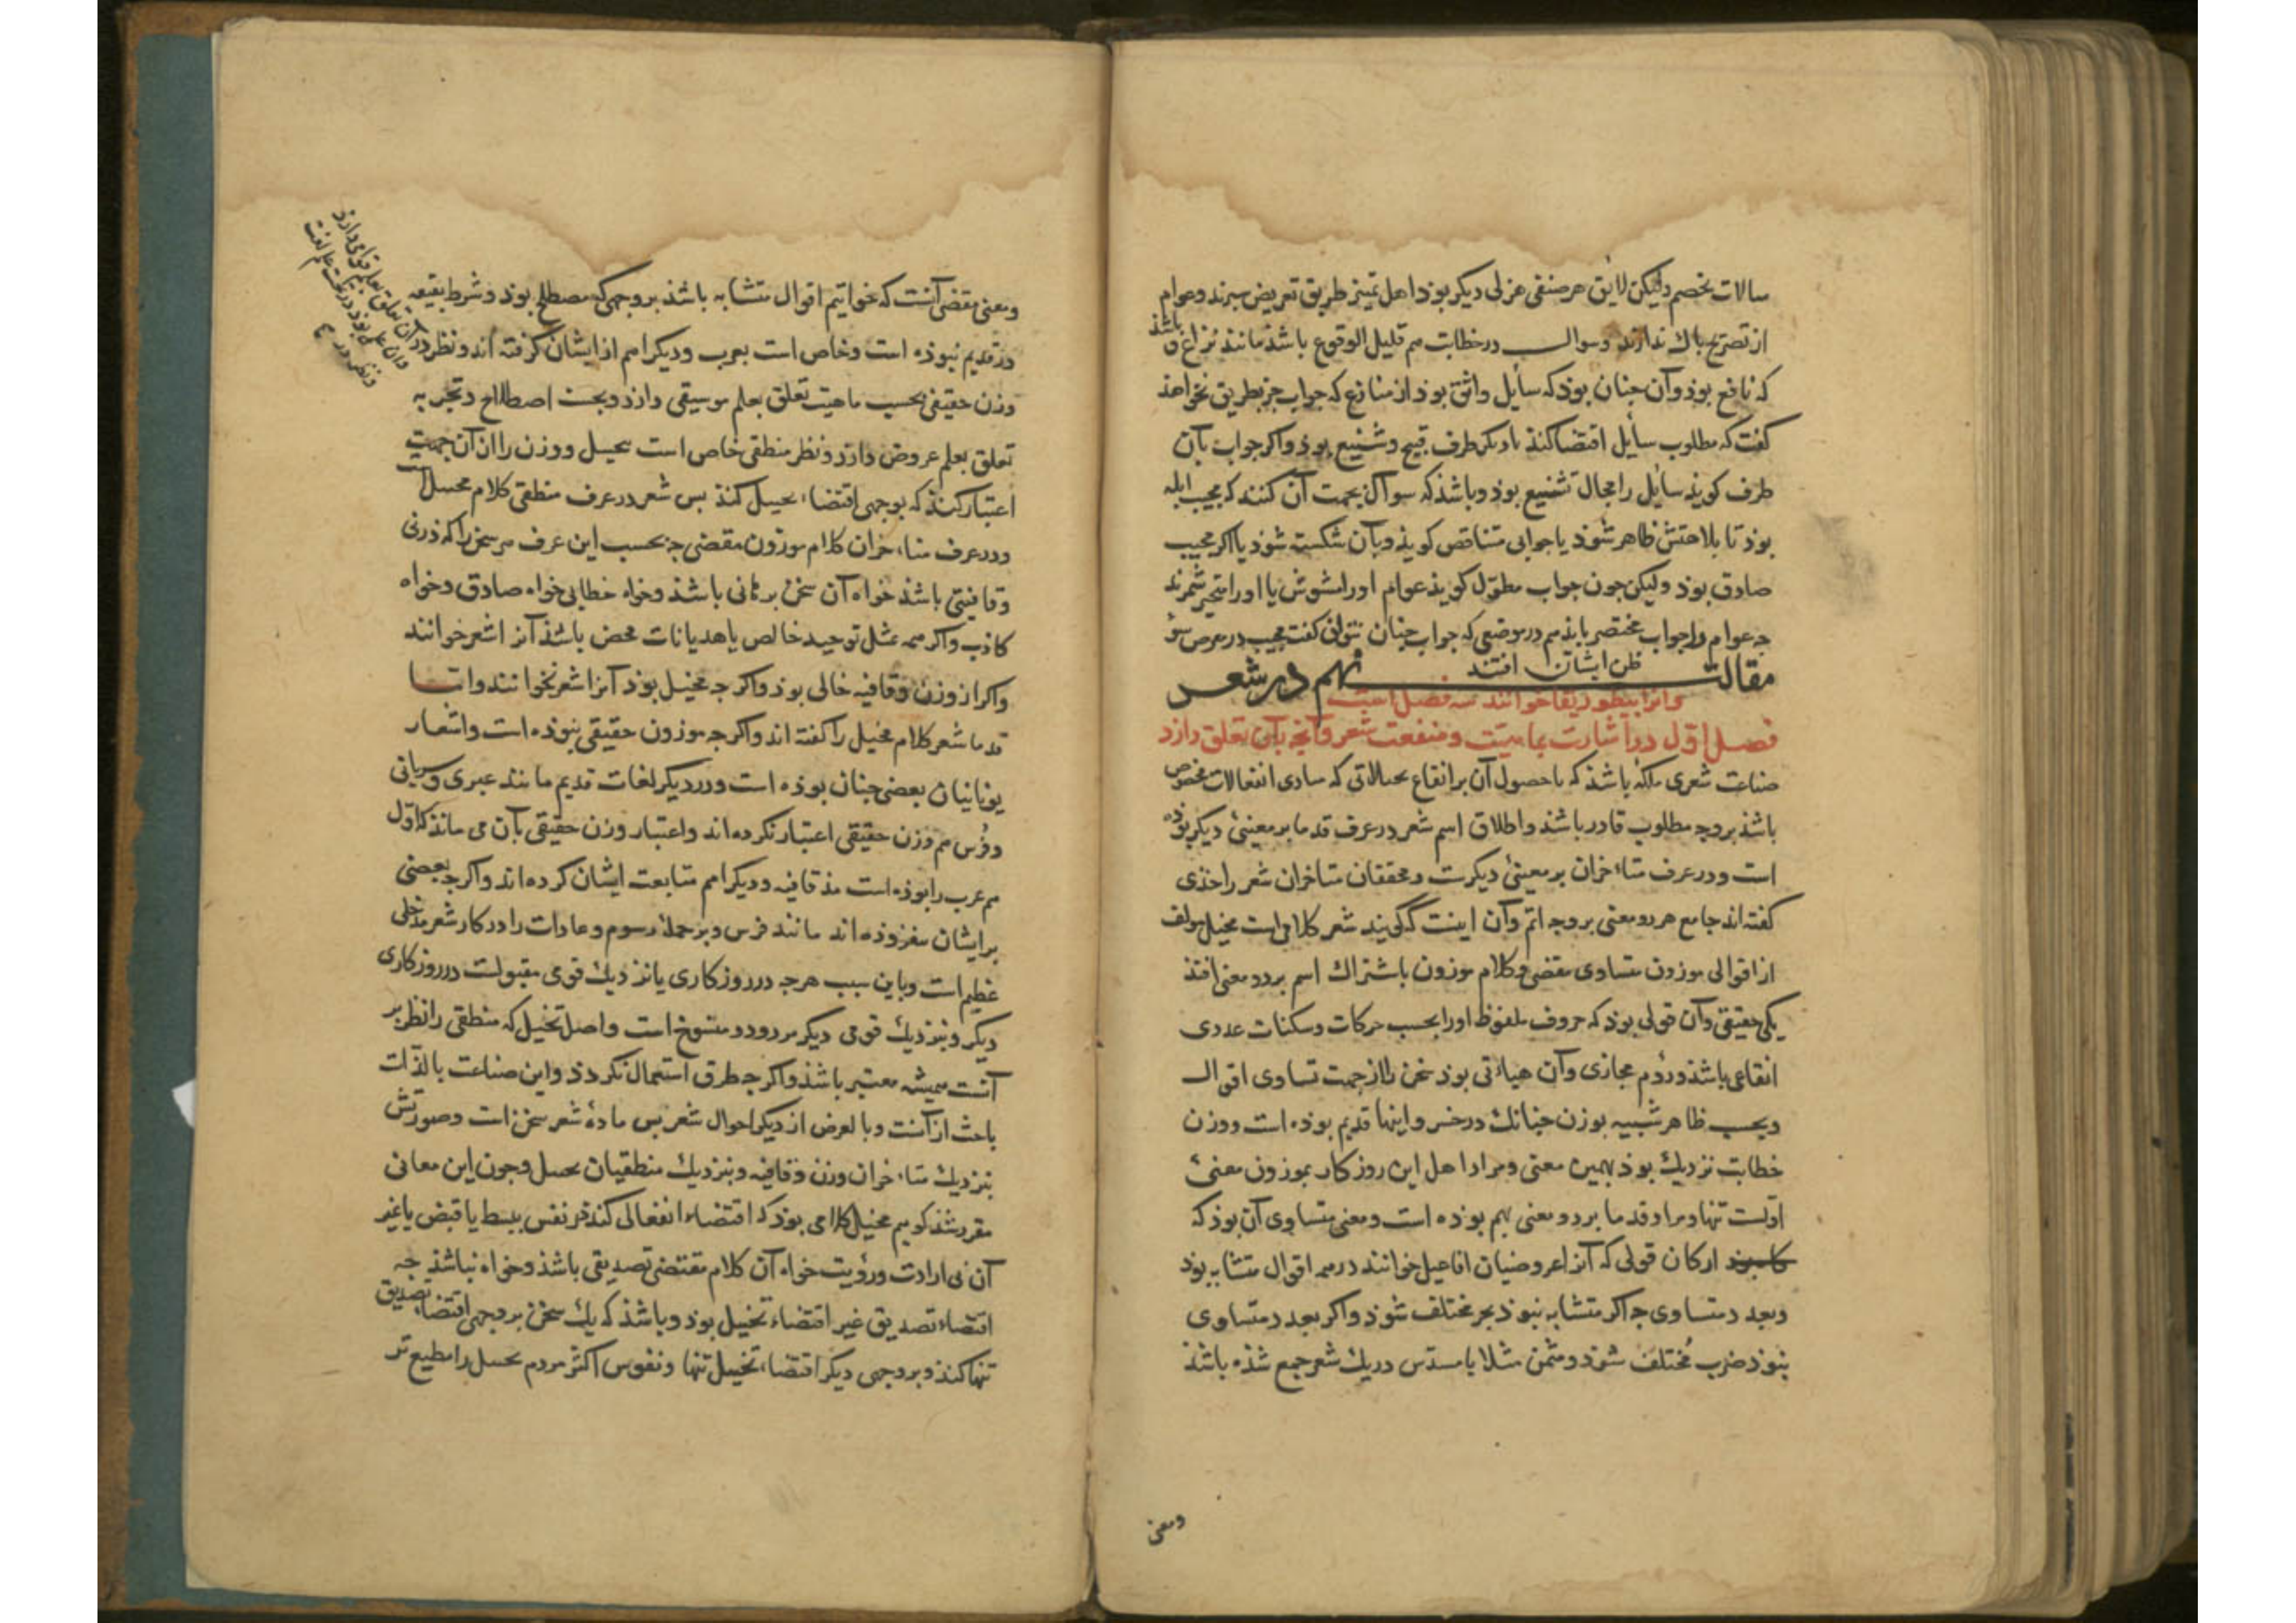 سالات بخصم ولیکن لایق هر صنفی هزلی دیکر بوذ اهل تمییز طریق تعریض سپرند و عوام
از تصریح باك ندارند وسوال در خطابت هم قلیل الوقوع باشذ مانند نزاع و باشذ
که نافع بوذ وآن جنان بوذ که سایل واثق بوذ از منازع که جواب جز بطریق نخواهذ
کفت که مطلوب سایل اقتضا کند یا دیکر طرف قبیح وشنیع بوذ واکر جواب بآن
طرف کویذ سایل را مجال تشنیع بوذ وباشذ که سوال بجهت آن کنند که مجیب ابله
بوذ تا بلاهتش ظاهر شوذ یا جوابی متناقض کویذ وبآن شکسته شوذ یا اکر مجیب
صادق بوذ ولیکن جون جواب مطوّل کویذ عوام اورا مشوش یا اورا متحیر شمرند
جه عوام را جواب مختصر بایذ هم در موضعی که جواب جنان نتوان کفت مجیب در معرض سوء
ظن ایشان افتد
مقالت نهم در شعر
وآنرا بیطوریقا خوانند سه فصل است
فصل اوّل در اشارت بماهیّت ومنفعت شعر وآنچه بآن تعلق دارد
صناعت شعری ملکهٔ باشذ که با حصول آن بر ایقاع تخیلاتی که مبادی انفعالات مخصوص
باشذ بر وجه مطلوب قادر باشذ واطلاق اسم شعر در عرف قدما بر معنیئ دیکر بوذه
است ودر عرف متاءخران بر معنیئ دیکرست ومحققان متاخران شعر را حدّی
کفته اند جامع هر دو معنی بر وجه اتم وآن اینست که کویند شعر کلامی است مخیل مولف
از اقوالی موزون متساوی مقفی وکلام موزون باشتراك اسم بر دو معنی افتذ
یکی حقیقی وآن قولی بوذ که حروف ملفوظ اورا بحسب حرکات وسکنات عددی
ایقاعی باشذ ودوم مجازی وآن هیاءتی بوذ سخن را از جهت تساوی اقوال
وبحسب ظاهر شبیه بوزن جنانك در خسروانیها قدیم بوذه است ووزن
خطابت نزدیك بوذ بهمین معنی ومراد اهل این روزکار بموزون معنیئ
اوّلست تنها ومراد قدما بر دو معنی بهم بوذه است ومعنی متساوی آن بوذ که
ارکان قولی که آنرا عروضیان افاعیل خوانند در همه اقوال متشابه بوذ
وبعدد متساوی جه اکر متشابه نبوذ بحر مختلف شوذ واکر بعدد متساوی
نبوذ ضرب مختلف شوذ ومثمن مثلا با مسدّس در یك شعر جمع شذه باشذ
ومعنی
ومعنی مقفی آنست که خواتیم اقوال متشابه باشذ بر وجهی که مصطلح بوذ وشرط تقفیه
در قدیم نبوذه است وخاص است بعرب ودیکر امم از ایشان کرفته اند ونظر در
وزن حقیقی بحسب ماهیت تعلق بعلم موسیقی دارد وبحسب اصطلاح وتجربه
تعلق بعلم عروض دارد ونظر منطقی خاص است بتخییل ووزن را از آن جهت
اعتبار کند که بوجهی اقتضاء تخییل کند بس شعر در عرف منطقی کلام مخیل است
ودر عرف متاءخران کلام موزون مقفی جه بحسب این عرف هر سخن را که وزنی
وقافیتی باشذ خواه آن سخن برهانی باشذ وخواه خطابی خواه صادق وخواه
کاذب واکر همه بمثل توحید خالص یا هذیانات محض باشذ آنرا شعر خوانند
واکر از وزن وقافیه خالی بوذ واکر جه مخیل بوذ آنرا شعر نخوانند واما
قدما شعر کلام مخیل را کفته اند واکر جه موزون حقیقی نبوذه است واشعار
یونانیان بعضی جنان بوذه است ودر دیکر لغات قدیم مانند عبری وسریانی
وفرس هم وزن حقیقی اعتبار نکرده اند واعتبار وزن حقیقی بآن می ماند که اول
هم عرب را بوذه است مذ قافیه ودیکر امم متابعت ایشان کرده اند واکر جه بعضی
بر ایشان بیفزوده اند مانند فرس وبر جمله رسوم وعادات را در کار شعر مدخلی
عظیم است وباین سبب هر جه در روزکاری یا نزدیك قومی مقبولست در روزکاری
دیکر ونزدیك قومی دیکر مردود ومنسوخ است واصل تخییل که منطقی را نظر بر
آنست همیشه معتبر باشذ واکر جه طرق استعمال بکردذ واین صناعت بالذات
باحث از آنست وبالعرض از دیکر احوال شعر بس مادهٔ شعر سخن است وصورتش
بنزدیك متاءخران وزن وقافیه وبنزدیك منطقیان تخییل وجون این معانی
مقرر شذ کوییم مخیل کلامی بوذ که اقتضاء انفعالی کند در نفس ببسط یا قبض یا غیر
آن بی ارادت ورؤیت خواه آن کلام مقتضی تصدیقی باشذ وخواه نباشذ جه
اقتضاء تصدیق غیر اقتضاء تخییل بوذ وباشذ که یك سخن بر وجهی اقتضاء تصدیق
تنها کند وبر وجهی دیکر اقتضاء تخییل تنها ونفوس اکثر مردم تخییل را مطیع تر